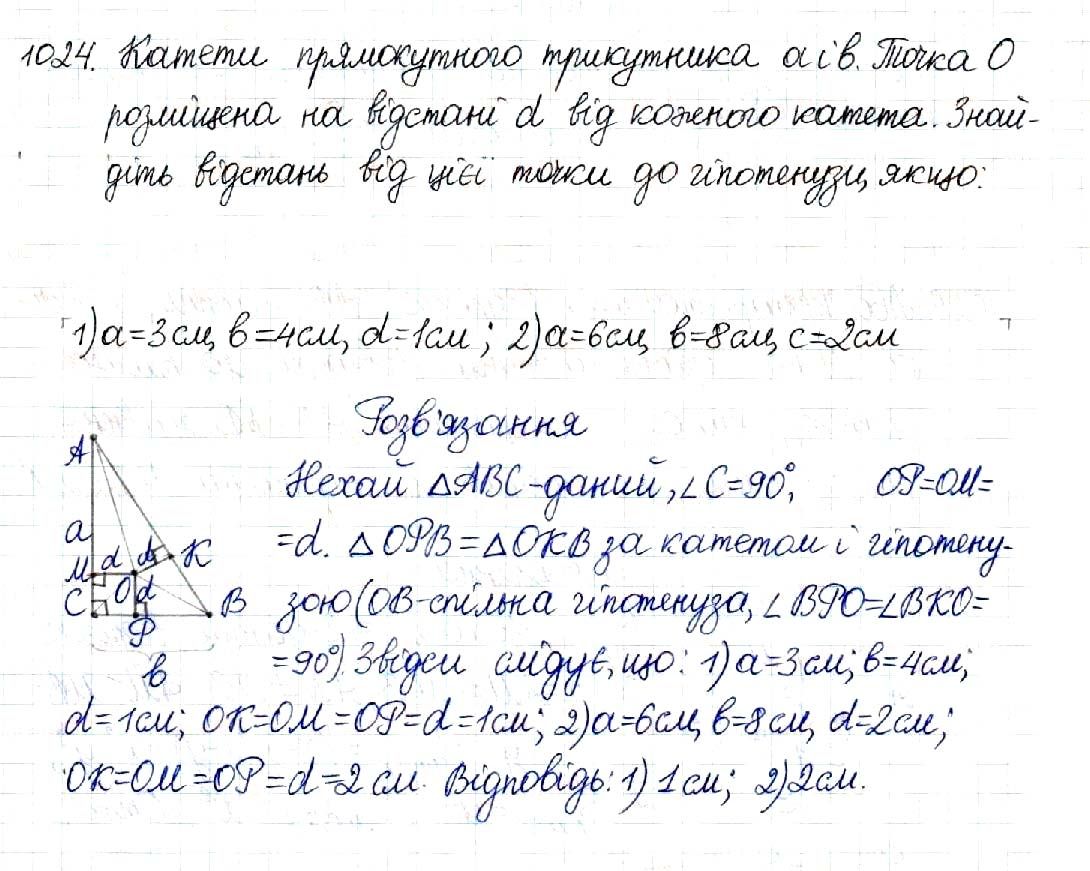 1024. Катети прямокутного трикутника a і в. Точка O
розміщена на відстані d від кожного катета. Знай-
діть відстань від цієї точки до гіпотенузи, якщо:
1) a=3см, в=4см, d=1см; 2) a=6см, в=8см, c=2см
Розв'язання
A
a
M
d
d
K
C
O
d
B
P
в
Нехай △ABC-даний, ∠C=90°, OP=OM=
=d. △OPB=△OKB за катетом і гіпотену-
зою (OB-спільна гіпотенуза, ∠BPO=∠BKO=
=90°). Звідси слідує, що: 1) a=3см; в=4см;
d=1см; OK=OM=OP=d=1см; 2) a=6см, в=8см, d=2см;
OK=OM=OP=d=2 см. Відповідь: 1) 1см; 2) 2см.